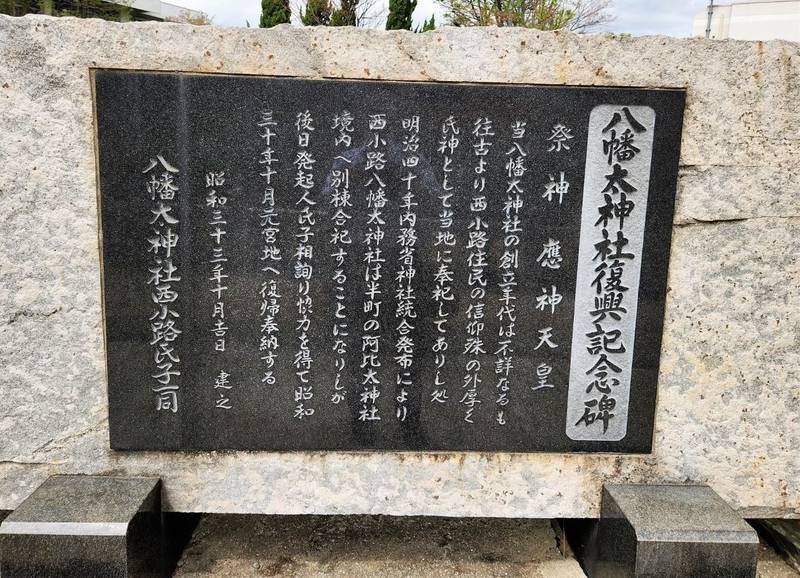 八幡太神社復興記念碑
祭神 應神天皇
当八幡太神社の創立年代は不詳なるも
往古より西小路住民の信仰殊の外厚く
氏神として当地に奉祀してありし処
明治四十年内務省神社統合発布により
西小路八幡太神社は半町の阿比太神社
境内へ別棟合祀することになりしが
後日発起人氏子相詢り懷力を得て昭和
三十年十月元宮地へ復帰奉納する
昭和三十三年十月吉日 建之
八幡太神社西小路氏子一同